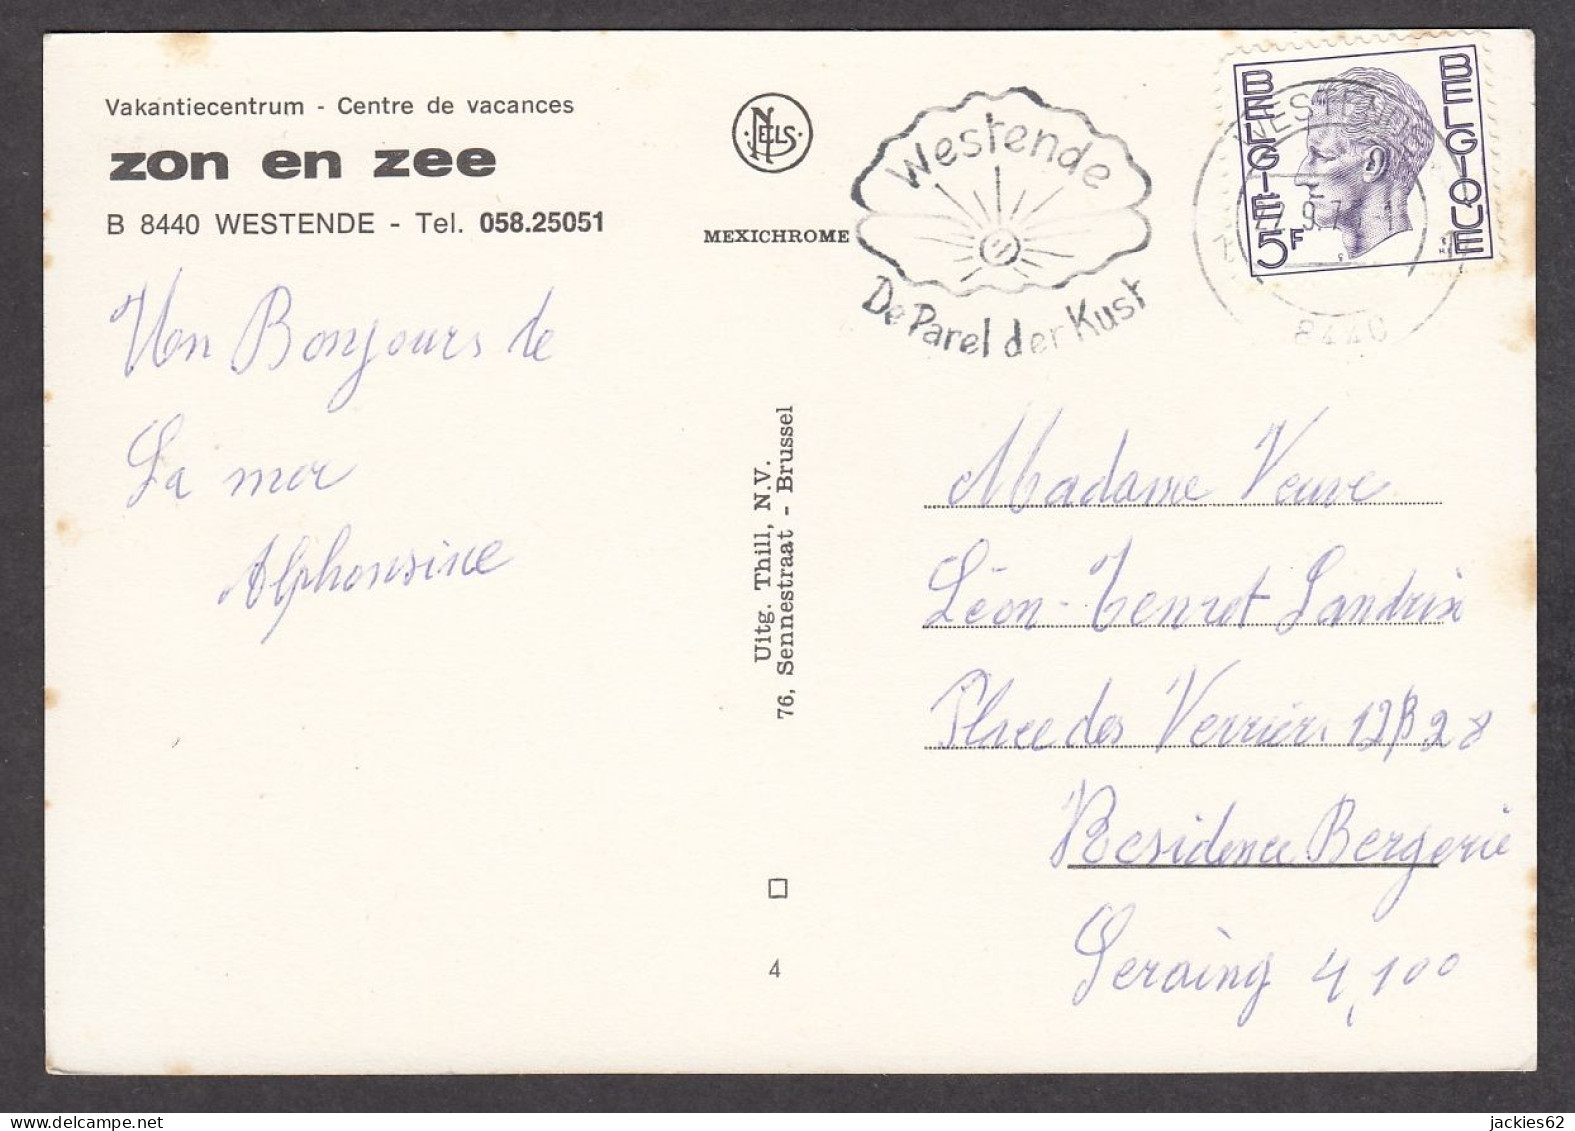 Vakantiecentrum - Centre de vacances
zon en zee
B 8440 WESTENDE - Tel. 058.25051
NELS
MEXICHROME
Westende
De Parel der Kust
WESTENDE
8440
BELGIE
BELGIQUE
5F
Un Bonjours de
La mer
Alphonsine
Uitg. Thill, N.V.
76, Sennestraat - Brussel
4
Madame Veuve
Léon Landrix
Place des Verriers 12B28
Residence Bergerie
Seraing 4,100
jackies62